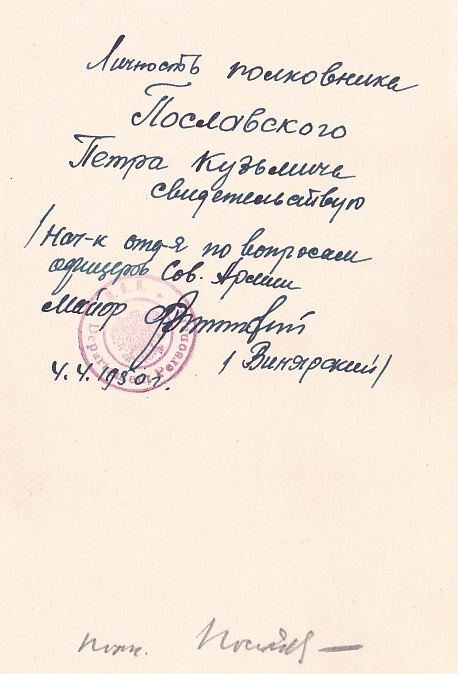 Личность полковника
Пославского
Петра Кузьмича
свидетельствую
/Нач-к отд-я по вопросам
офицеров Сов. Армии
Майор
/Винярский/
M. O. N.
Departament Person
4.4.1950г.
полк.